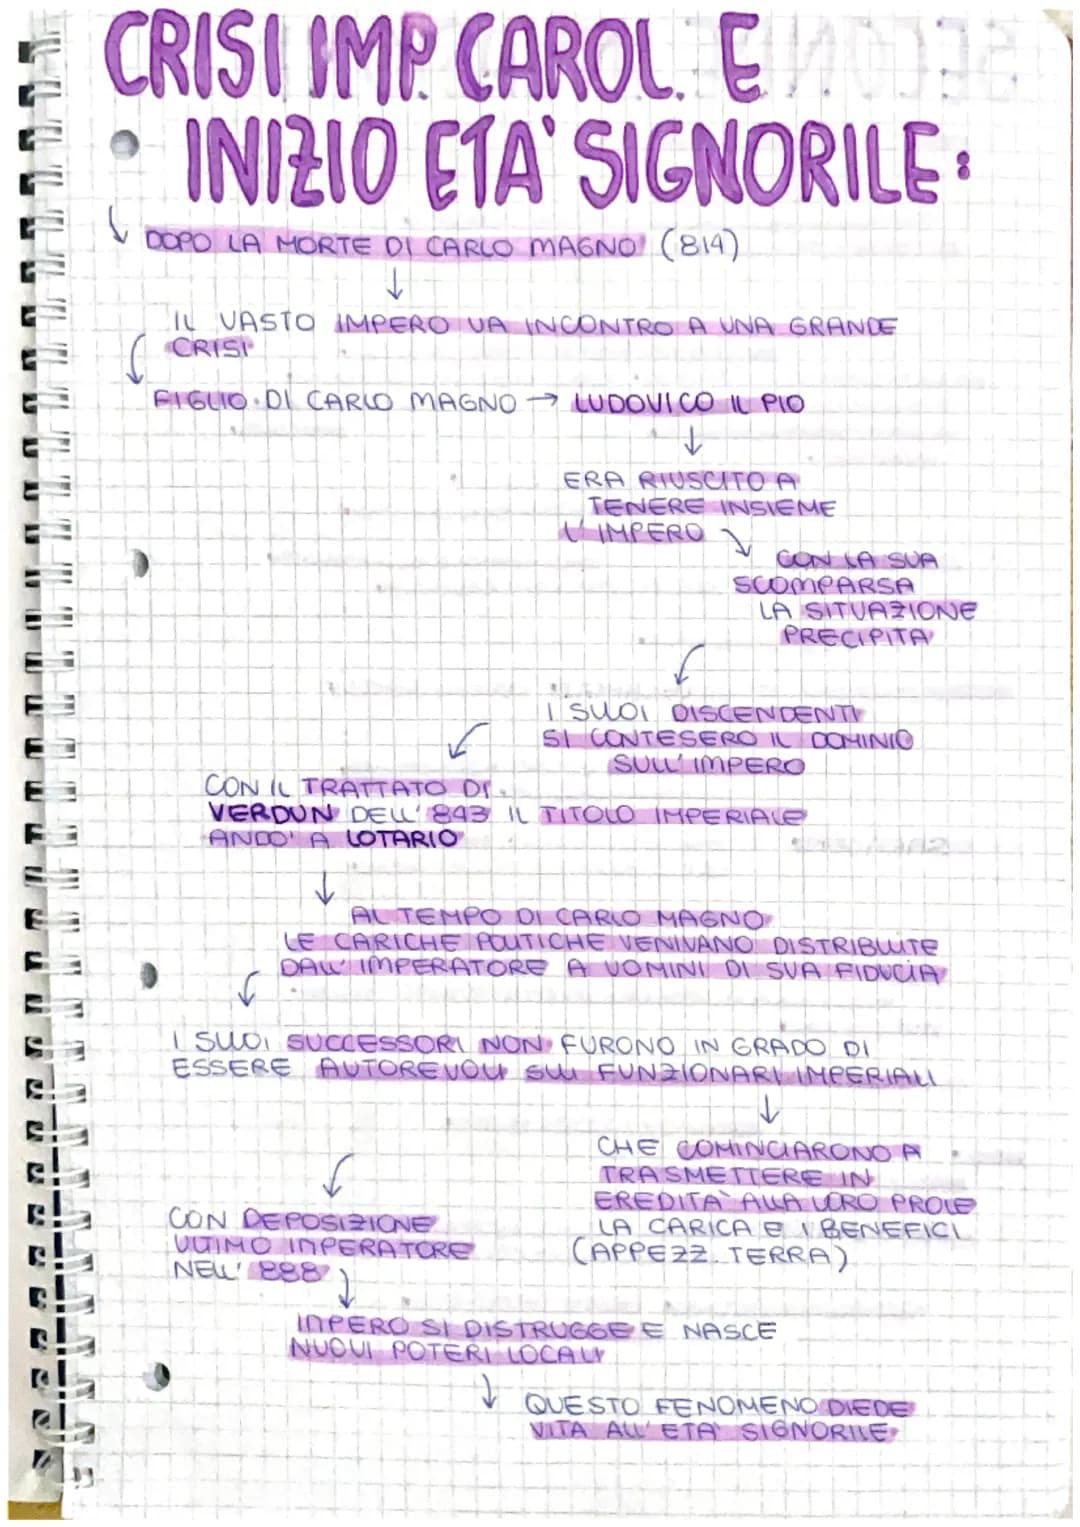 CRISI IMP. CAROL. E
INIZIO ETA' SIGNORILE:
DOPO LA MORTE DI CARLO MAGNO (814)
IL VASTO IMPERO VA INCONTRO A UNA GRANDE
CRISI
FIGLIO DI CARLO MAGNO → LUDOVICO IL PIO
ERA RIUSCITO A
TENERE INSIEME
L'IMPERO
CON LA SUA
SCOMPARSA
LA SITUAZIONE
PRECIPITA
I SUOI DISCENDENTI
SI CONTESERO IL DOMINIO
SULL'IMPERO
CON IL TRATTATO DI
VERDUN DELL'843 IL TITOLO IMPERIALE
ANDO' A LOTARIO
AL TEMPO DI CARLO MAGNO
LE CARICHE POLITICHE VENIVANO DISTRIBUITE
DALL'IMPERATORE A UOMINI DI SUA FIDUCIA
I SUOI SUCCESSORI NON FURONO IN GRADO DI
ESSERE AUTOREVOLI SUI FUNZIONARI IMPERIALI
CHE COMINCIARONO A
TRASMETTERE IN
EREDITA' ALLA LORO PROLE
LA CARICA E I BENEFICI
(APPEZZ. TERRA)
CON DEPOSIZIONE
ULTIMO IMPERATORE
NELL'888
IMPERO SI DISTRUGGE E NASCE
NUOVI POTERI LOCALI
QUESTO FENOMENO DIEDE
VITA ALL'ETA' SIGNORILE